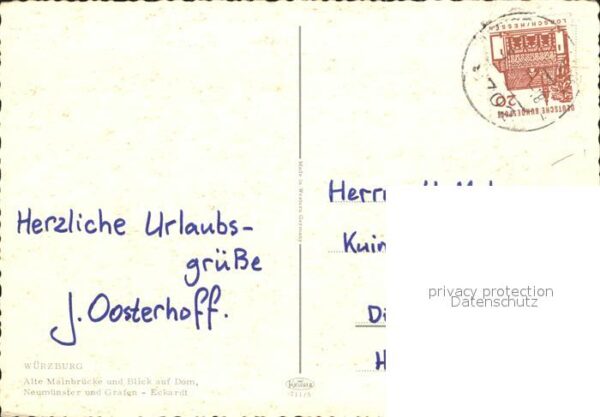 Herzliche Urlaubs-
grüße
J. Oosterhoff.
WÜRZBURG
Alte Mainbrücke und Blick auf Dom,
Neumünster und Grafen – Eckardt
Made in Western Germany
LORSCH/HESSEN
20
DEUTSCHE BUNDESPOST
privacy protection
Datenschutz